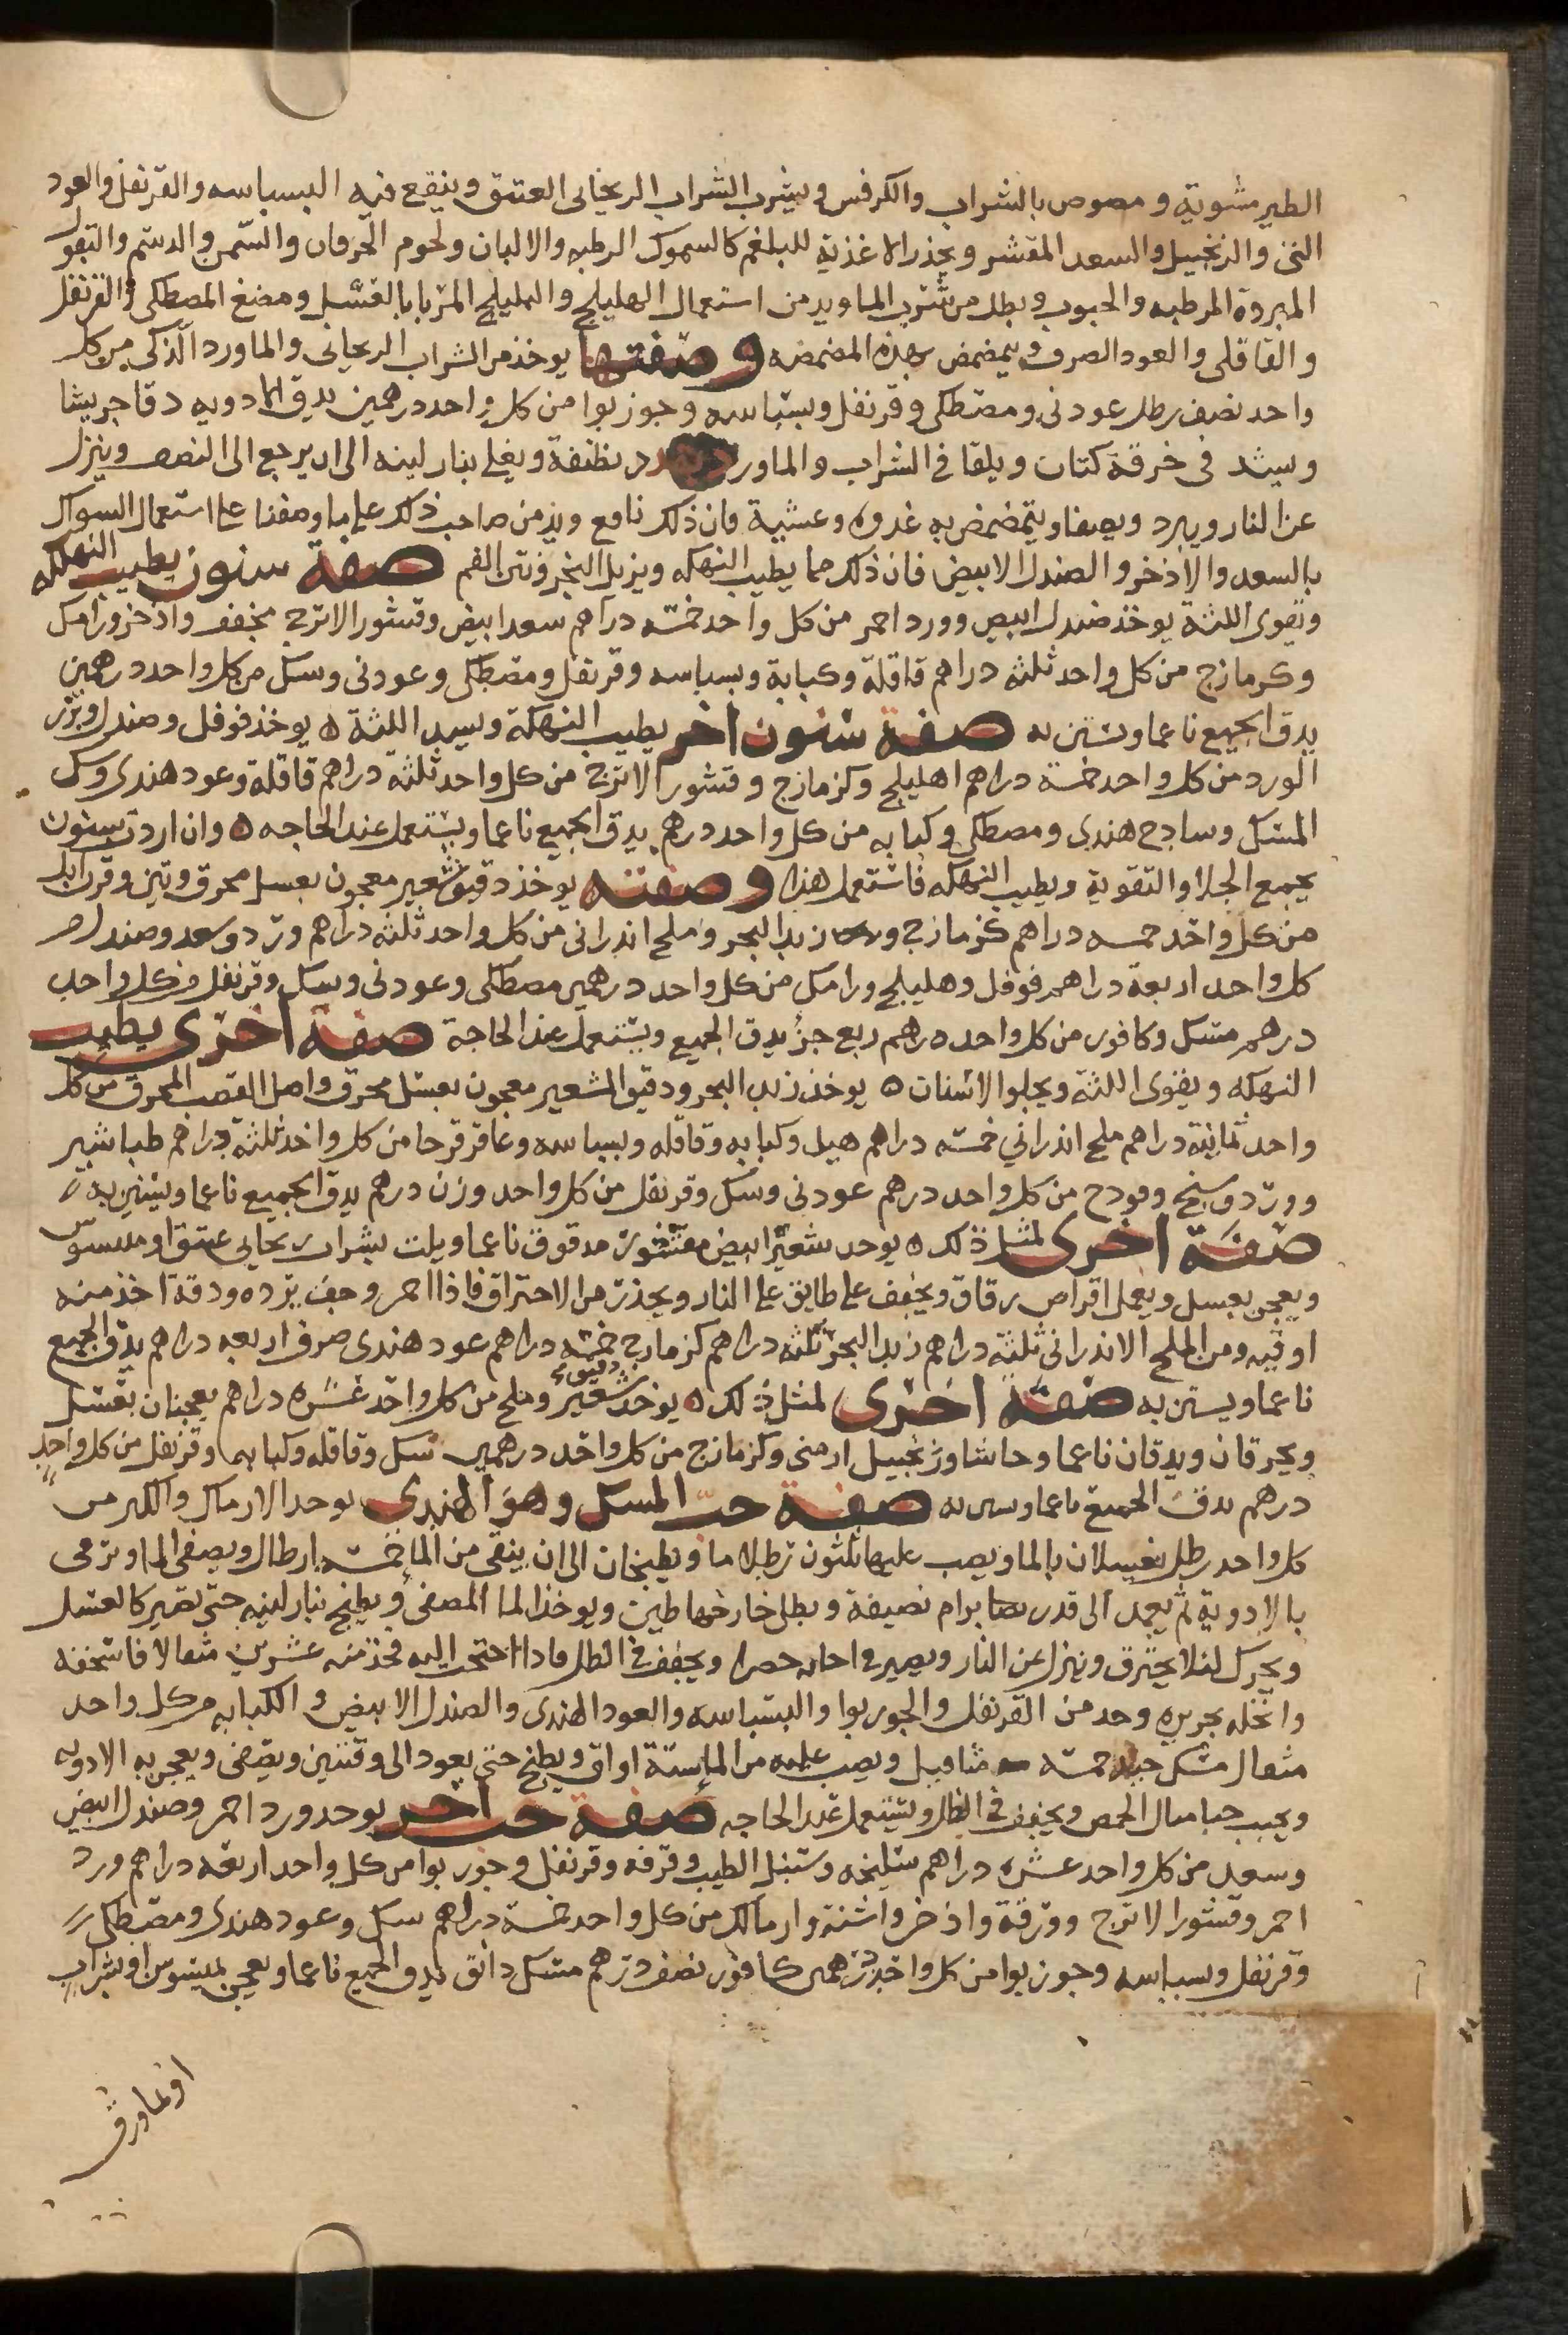 الطير مشوية ومصوص بالشراب والكرفس ويشرب الشراب الريحاني العتيق وينقع فيه البسباسه والقرنفل والعود
الني والزنجبيل والسعد المقشر ويحذر الاغذية للبلغم كالسموك الرطبه والالبان ولحوم الخرفان والسمن والدسم والبقول
المبرده المرطبه والحبوب ويطل من شرب الما ويدمن استعمال الهليلج والهليلج المربا بالعسل ومضغ المصطكى والقرنفل
والقاقلى والعود الصرف ويمضمض بهذه المضمضه وصفتها يوخذ من الشراب الريحاني والماورد الذكى من كل
واحد نصف رطل عود ني ومصطكى وقرنفل وبسباسه وجوزبوا من كل واحد درهمين يدق الادويه دقا جريشا
ويشد في خرقة كتان ويلقا في الشراب والماورد نظيفة ويغلى بنار لينه الى ان يرجع الى النصف وينزل
عن النار ويبرد ويصفا ويتمضمض به غدوه وعشية فان ذلك نافع ويدمن صاحب ذلك على ما وصفنا على استعمال السواك
بالسعد والاذخر والصندل الابيض فان ذلك مما يطيب النهكه ويزيل البخر ونتن الفم صفة سنون يطيب النهكه
وتقوى اللثة يوخذ صندل ابيض وورد احمر من كل واحد خمسه دراهم سعد ابيض وقشور الاترج مجفف واذخر ورامك
وكرمازج من كل واحد ثلثه دراهم قاقلة وكبابة وبسباسه وقرنفل ومصطكى وعود ني وسك من كل واحد درهمين
يدق الجميع ناعما ويستن به صفة سنون اخر يطيب النهكة ويشد اللثة ه يوخذ فوفل وصندل وبزر
الورد من كل واحد خمسة دراهم اهليلج وكزمازج وقشور الاترج من كل واحد ثلثة دراهم قاقلة وعود هندى وسك
المسك وسادج هندى ومصطكى وكبابه من كل واحد درهم يدق الجميع ناعما ويستعمل عند الحاجه ه وان اردت سنون
يجمع الجلا والتقوية ويطيب النهكه فاستعمل هذا وصفته يوخذ دقيق شعير معجون بعسل محرق وتين وقرن ايل
من كل واحد خمسه دراهم كزمازج وزبد البحر وملح اندراني من كل واحد ثلثه دراهم ورد وسعد وصندل من
كل واحد اربعة دراهم فوفل وهليلج ورامك من كل واحد درهمين مصطكى وعود ني وسك وقرنفل من كل واحد
درهم مسك وكافور من كل واحد درهم ربع جزؤ يدق الجميع ويستعمل عند الحاجة صفة اخرى يطيب
النهكه ويقوى اللثة ويجلوا الاسنان ه يوخذ زبد البحر ودقيق الشعير معجون بعسل محرق واصل القصب المحرق من كل
واحد ثمانية دراهم ملح اندراني خمسه دراهم هيل وكبابه وقاقله وبسباسه وعاقرقرحا من كل واحد ثلثة دراهم طباشير
وورد وسنج وفودج من كل واحد درهم عود ني وسك وقرنفل من كل واحد وزن درهم يدق الجميع ناعما ويستن به
صفة اخرى لمثل ذلك ه يوخد شعير ابيض مقشور مدقوق ناعما ويلت بشراب ريحاني عتيق او ميسوس
ويعجن بعسل ويعمل اقراص رقاق ويخفف على طابق على النار ويحذر من الاحتراق فاذا احمر وجف برده ودقه اخذ منه
اوقيه ومن الملح الاندراني ثلثة دراهم زبد البحر ثلثه دراهم كزمازج خمسه دراهم عود هندى صرف اربعه دراهم يدق الجميع
ناعما ويستن به صفة اخرى لمثل ذلك ه يوخذ دقيق شعير وملح من كل واحد عشره دراهم يعجنان بعسل
ويحرقان ويدقان ناعما وحاشا وزنجبيل ارمنى وكزمازج من كل واحد درهمين سك وقاقله وكبابه وقرنفل من كل واحد
درهم يدق الجميع ناعما ويستن به صفة حب المسك وهو الهندى يوخد الارماك والكبر من
كل واحد رطل يغسلان بالما ويصب عليها ثلثون رطلا ما ويطبخان الى ان يبقى من الما خمسه ارطال ويصفى الما ويرمى
بالادوية ثم يعمد الى قدر برام نضيفة ويطلى خارجها طين ويوخذ الما المصفى ويطبخ بنار لينه حتى تصير كالعسل
ويحرك لئلا يحترق وينزل عن النار ويصير في ويجفف في الظل فاذا احتجت اليه فخذ منه عشرين مثقالا فاسحقه
وانخله بحريره وخد من القرنفل والجوزبوا والبسباسه والعود الهندى والصندل الابيض والكبابه من كل واحد
مثقال مسك جيد خمسه مثاقيل ويصب عليه من الما ستة اواق ويطبخ حتى يعود الى وقتين ويصفى ويعجن به الادويه
ويحبب حبا مثال الحمص ويجفف في الظل ويستعمل عند الحاجه صفة حب اخر يوخد ورد احمر وصندل ابيض
وسعد من كل واحد عشره دراهم سليخه وسنبل الطيب وقرفه وقرنفل وجوزبوا من كل واحد اربعه دراهم ورد
احمر وقشور الاترج وورقة واذخر واشنة وارمالك من كل واحد خمسة دراهم سك وعود هندى ومصطكى
وقرنفل وبسباسه وجوزبوا من كل واحد درهمين كافور نصف درهم مسك دانق يدق الجميع ناعما ويعجن بميسوس او بشراب
او بماورق